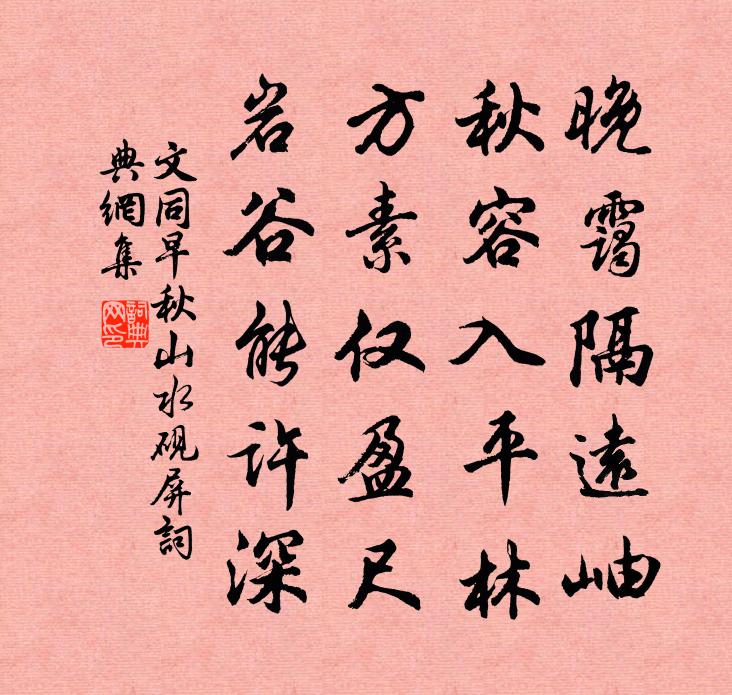 晚靄隔遠岫
秋容入平林
方素仅盈尺
岩谷能许深
文同早秋山水砚屏詞
典網集
詞典网印